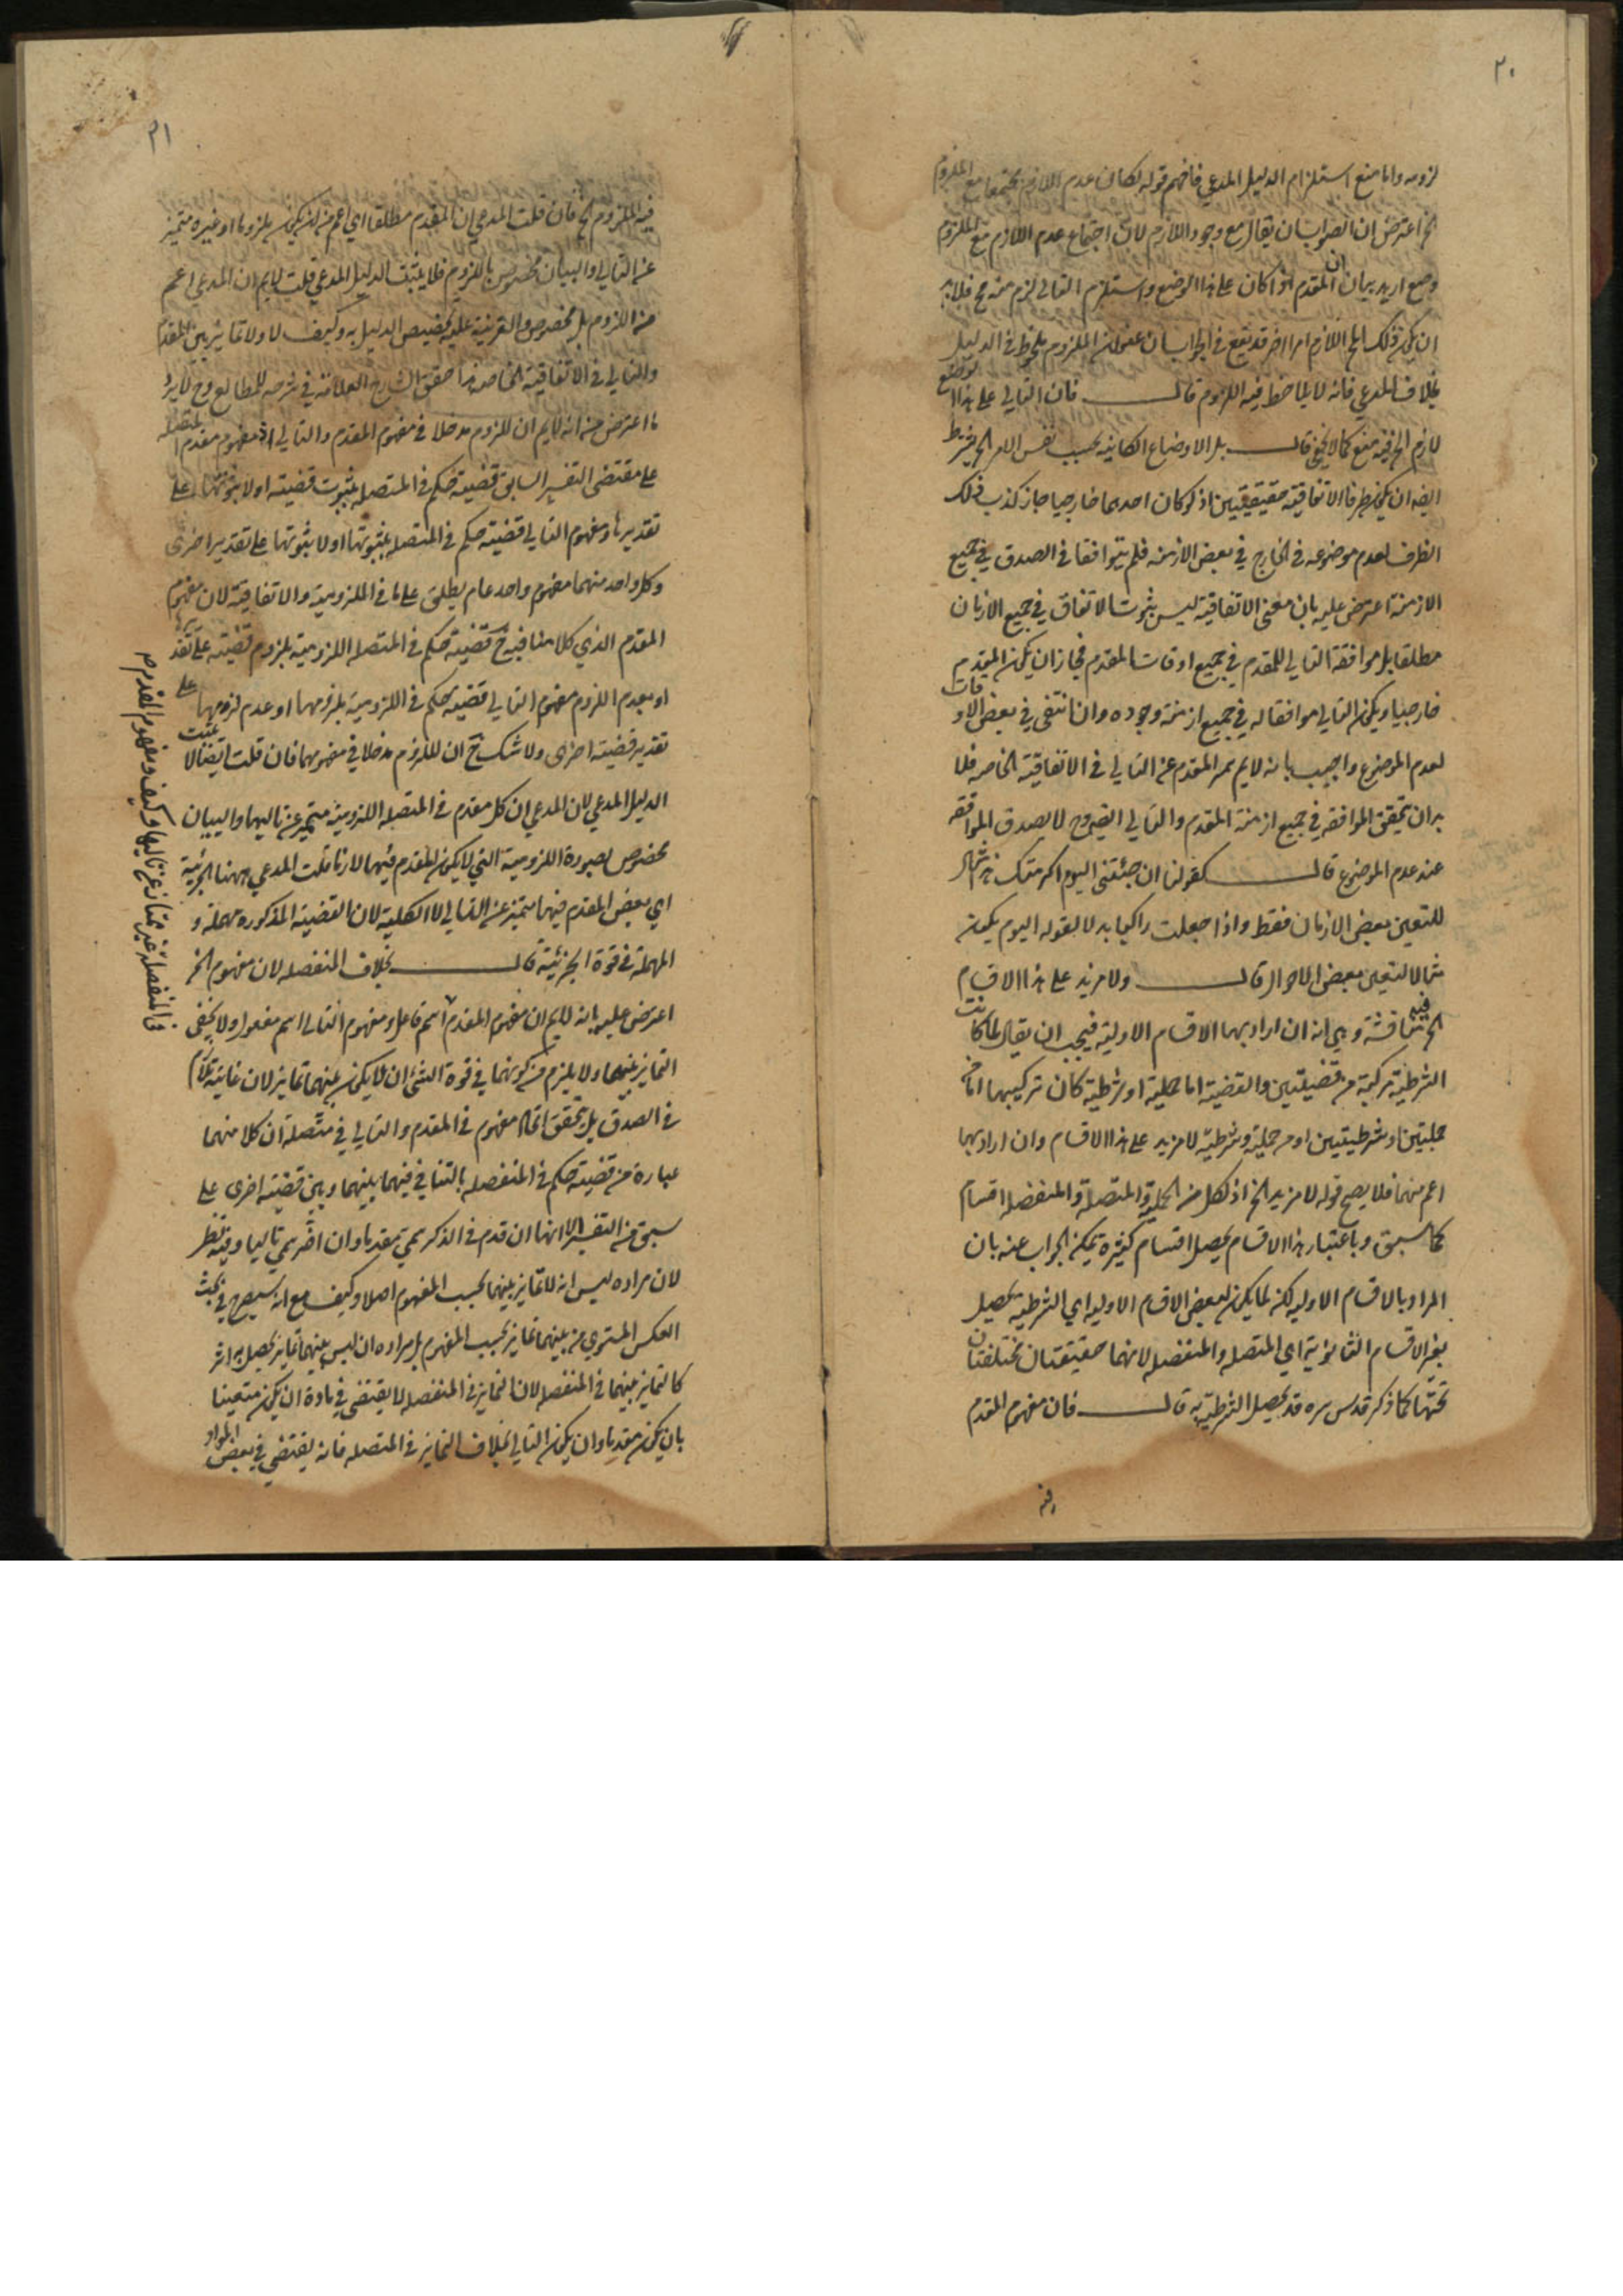 ٢٠
لزومه واما منع استلزام الدليل المدعي فافهم قوله لكان عدم اللازم مجتمعا مع الملزوم
الخ اعترض ان الصواب ان يقال مع وجود اللازم لان اجتماع عدم اللازم مع الملزوم
وضع اريد بيان ان المقدم اذا كان على هذا الوضع واستلزم التالي لزم منه مح فلابد
ان يكون ذلك المح اللازم امرا اخر قد يقع في الجواب ان عنوان الملزوم ملحوظ في الدليل
بخلاف المدعي فانه لا يلاحظ فيه اللزوم قال فان التالي على هذا الوضع
لازم الخ فيه منع كما لا يخفى قال بل الاوضاع الكائنة بحسب نفس الامر الخ يشترط
ايضا ان يكون طرفا الاتفاقية حقيقيتين اذ لو كان احدهما خارجيا جاز كذب ذلك
الطرف لعدم موضوعه في الخارج في بعض الازمنه فلم يتوافقا في الصدق في جميع
الازمنة اعترض عليه بان معنى الاتفاقية ليس ثبوت الاتفاق في جميع الازمان
مطلقا بل موافقة التالي للمقدم في جميع اوقات المقدم فجاز ان يكون المقدم
خارجيا ويكون التالي موافقا له في جميع ازمنة وجوده وان انتفى في بعض الاوقات
لعدم الموضوع واجيب بانه لايم المقدم عن التالي في الاتفاقية الخاصه فلا
بد ان يتحقق الموافقه في جميع ازمنة المقدم والتالي ايضا وح لا يصدق الموافقه
عند عدم الموضوع قال كقولنا ان جئتني اليوم اكرمتك هذا مثال
للتعين بعض الازمان فقط واذا جعلت راكبا بدلا لقوله اليوم يكون
مثالا لتعين بعض الاحوال قال ولا مزيد على هذا الاقسام
الخ فيه مناقشة وهي انه ان اراد بها الاقسام الاولية فيجب ان يقال لما كانت
الشرطية مركبة من قضيتين والقضية اما حملية او شرطية كان تركيبها اما من
حمليتين او شرطيتين او من حملية وشرطية لا مزيد على هذا الاقسام وان اراد بها
اعم منها فلا يصح قوله لا مزيد الخ اذ لكل من الحملية والمتصلة والمنفصله اقسام
كما سبق وباعتبار هذا الاقسام يحصل اقسام كثيرة يمكن الجواب عنه بان
المراد بالاقسام الاوليه لكنه لما يكون لبعض الاقسام الاوليه اي الشرطية تحصيل
بغير الاقسام الثانوية اي المتصله والمنفصله لانهما حقيقتان مختلفتان
تحتها كما ذكر قدس سره قد يحصل الشرطية به قال فان مفهوم المقدم
فيه
٢١
فيه الملزوم الخ فان قلت المدعي ان المقدم مطلقا اي اعم من ان يكون ملزوما او غيره متميز
عن التالي والبيان مخصوص باللزوم فلا يثبت الدليل المدعي قلت لايم ان المدعي اعم
من اللزوم بل مخصوص والقرينة عليه تخصيص الدليل به وكيف لا ولا تمايز بين المقدم
والتالي في الاتفاقية الخاصه هذا حقق الشارح العلامة في شرحه للمطالع وح لا يرد
ما اعترض من انه لايم ان للزوم مدخلا في مفهوم المقدم والتالي اذ مفهوم مقدم المتصله
على مقتضى التفسير السابق قضية حكم في المتصله بثبوت قضية او لا بثبوتها على
تقديرها ومفهوم التالي قضية حكم في المتصله بثبوتها او لا ثبوتها على تقدير اخرى
وكل واحد منهما مفهوم واحد عام يطلق على ما في اللزومية والاتفاقية لان مفهوم
المقدم الذي كلامنا فيه ح قضية حكم في المتصله اللزومية بلزوم قضية على تقديره
او بعدم اللزوم مفهوم التالي قضية حكم في اللزومية بلزومها او عدم لزومها على
تقدير قضية اخرى ولا شك ح ان للزوم مدخلا في مفهومهما فان قلت ايضا لا يثبت
الدليل المدعي لان المدعي ان كل مقدم في المتصله اللزومية متميز عن تاليها والبيان
مخصوص بصورة اللزومية التي لا يكون المقدم فيها لازما قلت المدعي ههنا الجزئية
اي بعض المقدم فيها متميز عن التالي لا الكلية لان القضية المذكوره مهملة و
المهملة في قوة الجزئية قال بخلاف المنفصله لان مفهوم الخ
اعترض عليه بانه لايم ان مفهوم المقدم اسم فاعل ومفهوم التالي اسم مفعول ولا يخفى
التمايز بينهما ولا يلزم من كونهما في قوة الشئ ان لا يكون بينهما تمايز لان غايته
في الصدق بل يتحقق اتحاد مفهوم في المقدم والتالي في متصلة ان كلا منهما
عبارة من قضية حكم في المنفصله بالتنافي فيهما بينهما وبين قضية اخرى على
سبق من التفسير الا انها ان قدم في الذكر سمي مقدما وان اخر سمي تاليا وفيه نظر
لان مراده ليس انه لا تمايز بينهما بحسب المفهوم اصلا وكيف مع انه سيصرح في بحث
العكس المستوي من بينهما تمايز بحسب المفهوم بل مراده ان ليس بينهما تمايز يحصل به اثر
كالتمايز بينهما في المنفصله لان التمايز في المنفصله لا يقتضي في مادة ان يكون متعينا
بان يكون مقدما وان يكون التالي بخلاف التمايز في المتصله فانه يقتضي في بعض المواد
في المنفصلة غير ممتاز عن تاليها وكيف ومفهوم المقدم